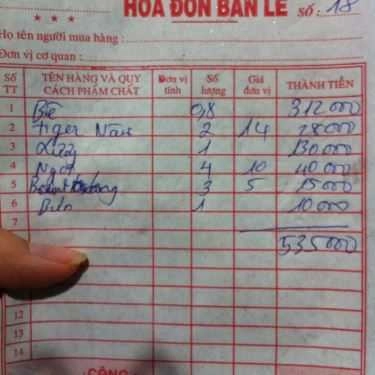 HÓA ĐƠN BÁN LẺ Số: 18
Họ tên người mua hàng :
Đơn vị cơ quan :
Số TT TÊN HÀNG VÀ QUY CÁCH PHẨM CHẤT Đơn vị tính Số lượng Giá đơn vị THÀNH TIỀN
1 0,8 312000
2 Tiger Nâu 2 14 28000
3 1 130000
4 Ngọt 4 10 40 000
5 3 5 15000
6 1 10 000
7
535 000
12
13
14
CỘNG